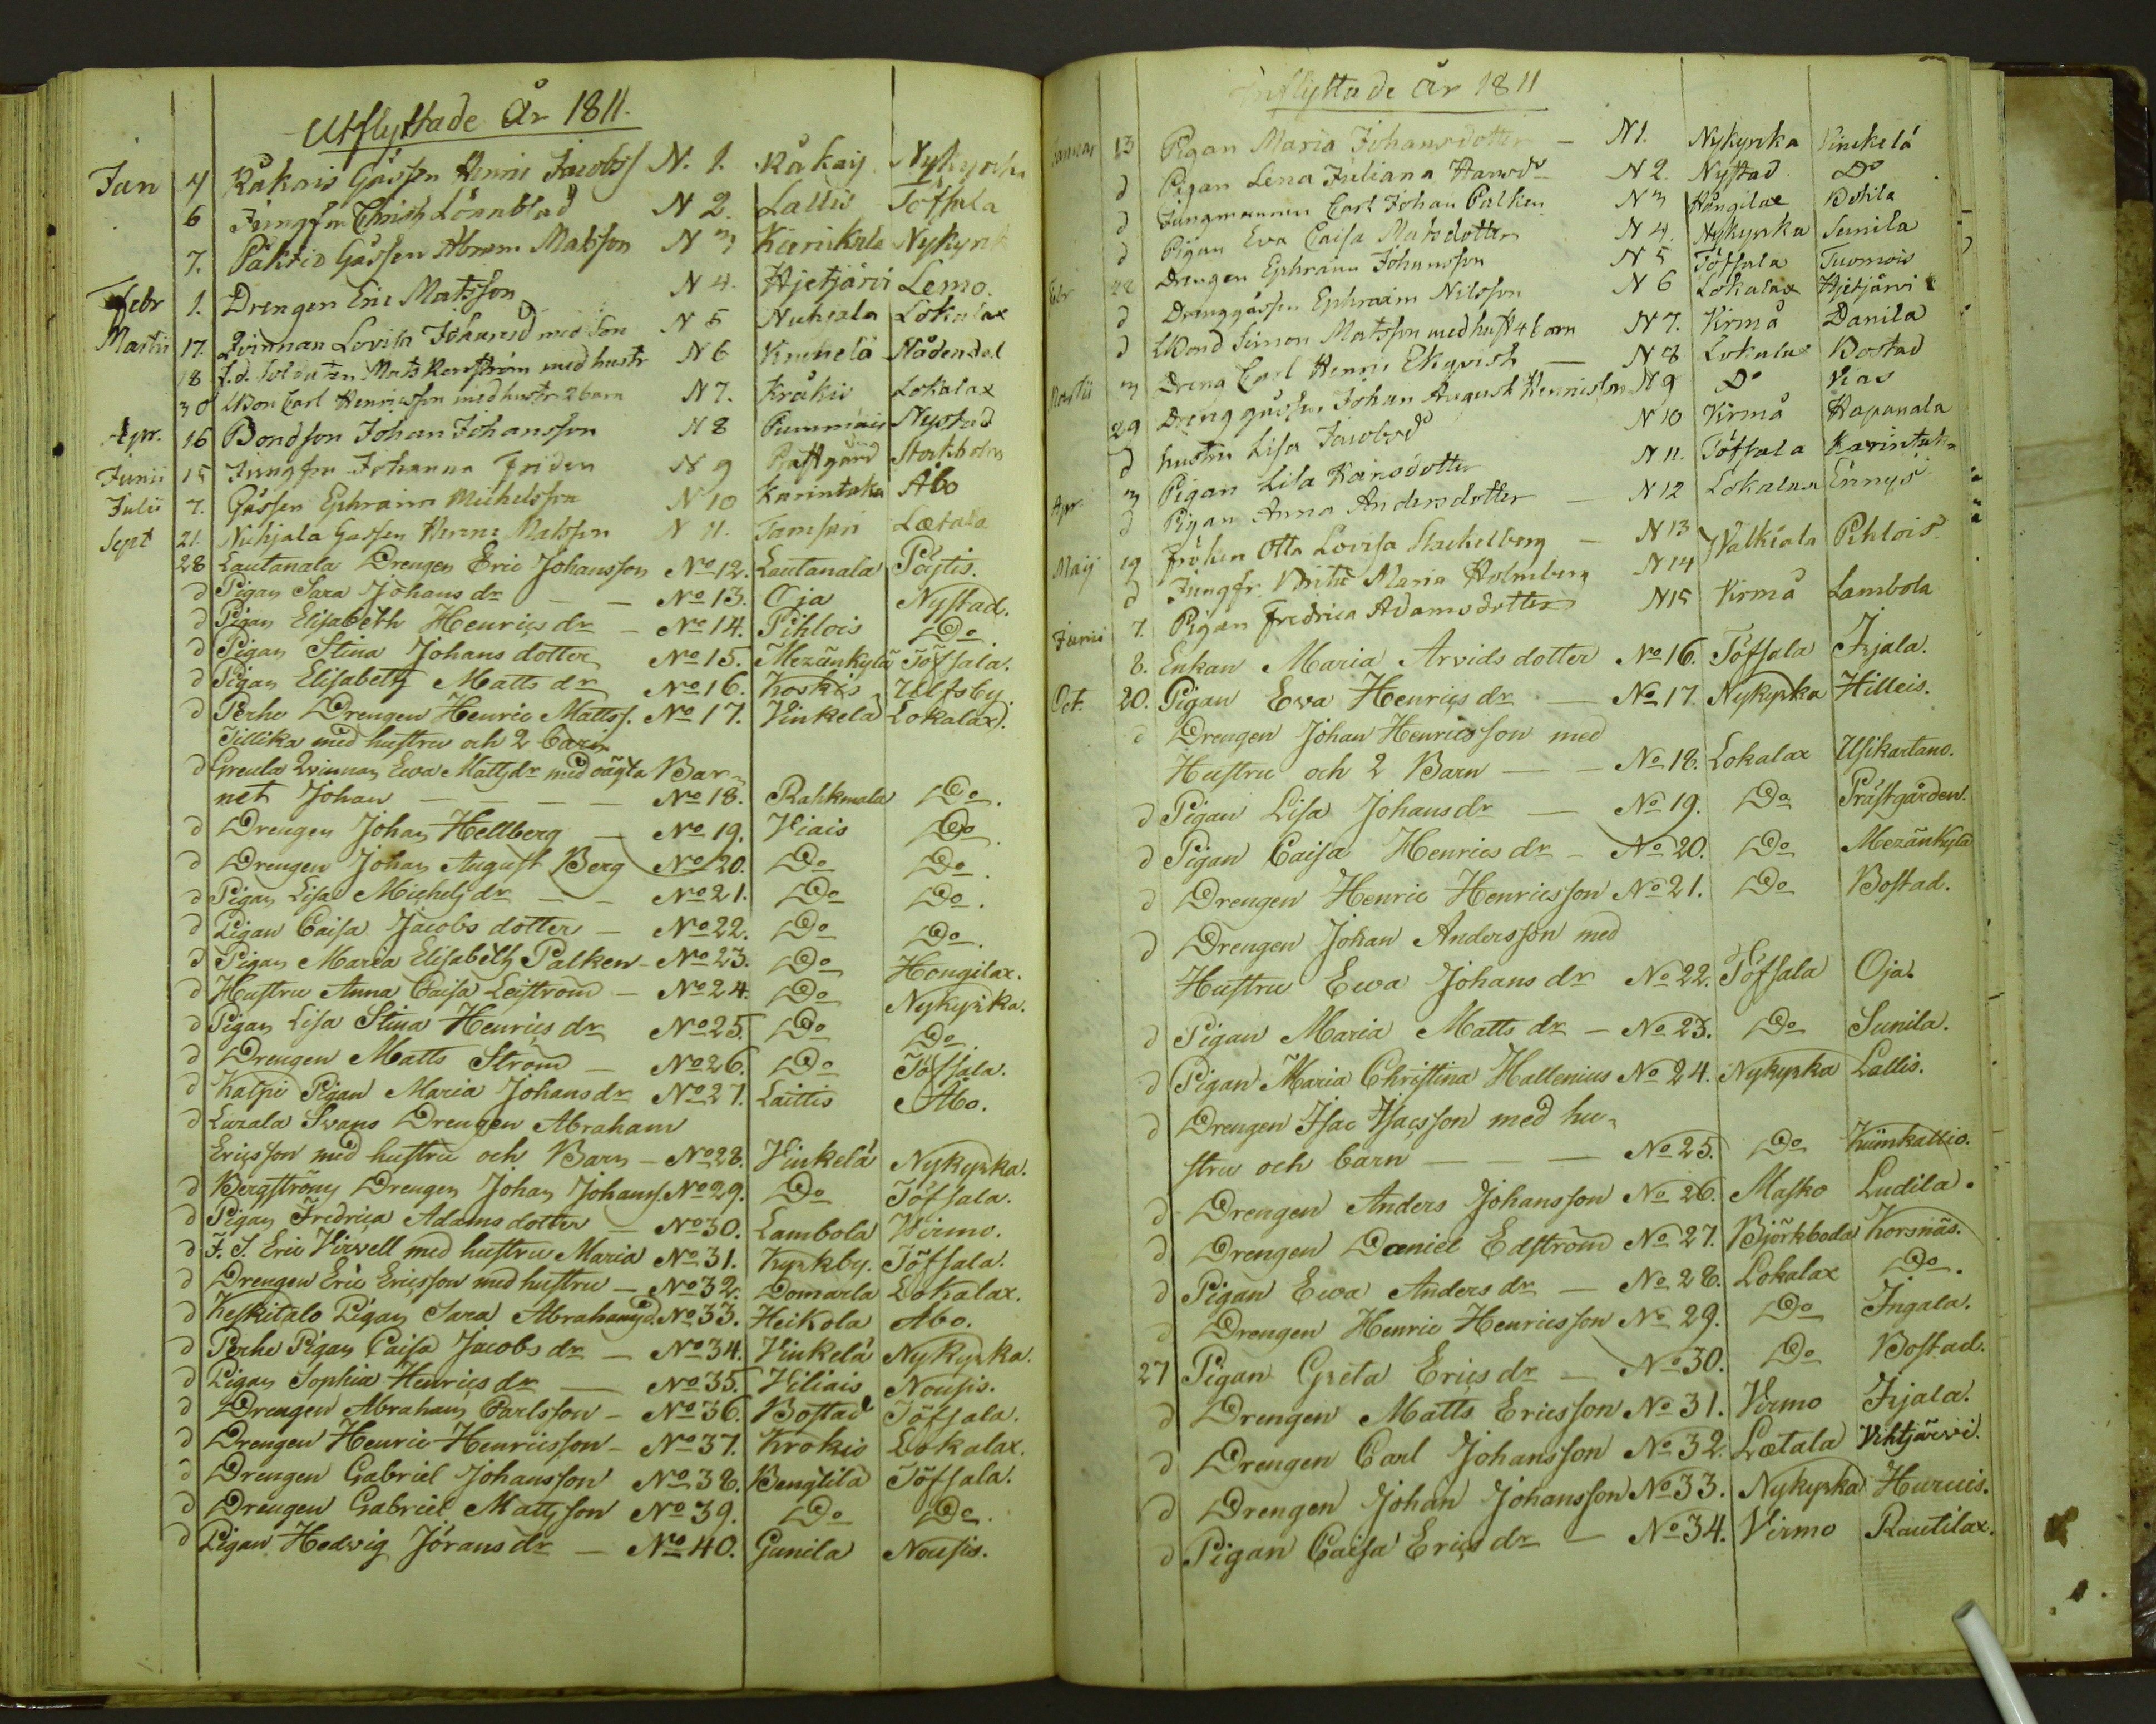 Utflyttade År 1811.
Jan 4 Råkois Gåssen Henric Jacobss N. 1. Råkais Nykyrka
6 Jungfru Christ. Lönnblad N 2. Lallis Töfsala
7. Påktio Gåssen Abram Matsson N 3 Nykyrk
Febr 1. Drengen Eric Matsson N 4. Hjetjärvi Lemo.
Martii 17. Qvinnan Lovisa Johansd med Son N 5 Nuhiala Lokalax
18 f.d. Soldaten Mats Renström med hustr N 6 Vinkelä Nådendal
30 Carl Henricsson med hustr 2 barn N 7. Kråkis Lokalax
Apr. 16 Bondson Johan Johansson N 8 Nystad
Junii 15 Jungfru Johanna Friden N 9 Prästgård Stockholm
Julii 7. Gåssen Ephraim Michelsson N 10 Karintaka Åbo
Sept 21. Nuhjala Gossen Henric Matsson N 11. Tamseri Lætala
28 Lautanala Drengen Eric Johansson No 12. Lautanala Pöytis.
d Pigan Sara Johans dr — — No 13. Oja Nystad.
d Pigan Elisabeth Henrics dr — No 14. Pihlois Do.
d Pigan Stina Johans dotter No 15. Mezänkylä Töfsala.
d Pigan Elisabeth Matts dr No 16. Koskis Ulfsby
d Perho Drengen Henric Mattss. No 17. Vinkelä Lokalax.
Tillika med hustru och 2 barn
d Greula Qvinnan Ewa Mattsdr med oägta Bar-
net Johan — — — — No 18. Rahkmala Do.
d Drengen Johan Hellberg — No 19. Viais Do.
d Drengen Johan August Berg No 20. Do Do.
d Pigan Lisa Michels dr — — No 21. Do Do.
d Pigan Caisa Jacobs dotter — No 22. Do Do.
d Pigan Maria Elisabeth Palken — No 23. Do Hougilax.
d Hustru Anna Caisa Leistrom — No 24. Do Nykyrka.
d Pigan Lisa Stina Henrics dr No 25. Do Do.
d Drengen Matts Ström — No 26. Do Töfsala.
d Katpi Pigan Maria Johans dr No 27. Laittis Åbo.
d Luzala Svans Drengen Abraham
Ericsson med hustru och Barn — No 28. Vinkelä Nykyrka.
d Bergströms Drengen Johan Johanss. No 29. Do Töfsala.
d Pigan Fredrica Adams dotter — No 30. Lambola Virmo.
d F. S. Eric Virvell med hustru Maria No 31. Kyrkby. Töfsala.
d Drengen Eric Ericsson med hustru — No 32. Domarla Lokalax.
d Keskitalo Pigan Sara Abrahamsd. No 33. Heikola Åbo.
d Perho Pigan Caisa Jacobs dr — No 34. Vinkelä Nykyrka.
d Pigan Sophia Henrics dr — No 35. Viliais Nousis.
d Drengen Abraham Carlsson — No 36. Bostad Töfsala.
d Drengen Henric Henricsson — No 37. Krokis Lokalax.
d Drengen Gabriel Johansson No 38. Bengtila Töfsala.
d Drengen Gabriel Mattsson No 39. Do Do.
d Pigan Hedvig Jörans dr — No 40. Gunila Nousis.
Inflyttade År 1811
Januar 13 Pigan Maria Johansdotter — N 1. Nykyrka Vinkelä
d Pigan Lena Juliana Hansdr N 2. Nystad Do
d Jungmannen Carl Johan Palken N 3 Hougilax Botila
d Pigan Eva Caisa Matsdotter N 4. Nykyrka Sunila
Febr 22 Drengen Ephraim Johansson N 5 Töfsala Tuomois
d Drenggåssen Ephraim Nilsson N 6 Lokalax Hjetjärvi
d Bond Simon Matsson med hust 4 barn N 7. Virmå Danila
Martii 3 Dreng Carl Henric Ekqvist — N 8 Lokalax Bostad
29 Drenggåssen Johan August Henricsson N 9 Do Vias
d hustru Lisa Jacobsd N 10 Virmå Hapanala
Apr. 3 Pigan Lisa Karisdotter N 11. Töfsala Karintaka
d Pigan Anna Andersdotter — N 12 Lokalax Ennys
Maij 19 Fröken Otta Lovisa Stackelberg — N 13 Walkiala Pihlois
d Jungfr. Brita Maria Holmberg N 14
Junii 7. Pigan Fredrica Adamsdotter N 15 Virmå Lambola
8. Enkan Maria Arvids dotter No 16. Töfsala Irjala.
Oct. 20. Pigan Ewa Henrics dr — No 17. Nykyrka Hilleis.
d Drengen Johan Henricsson med
Hustru och 2 Barn — — No 18. Lokalax Usikartano.
d Pigan Lisa Johans dr — No 19. Do Prästgården.
d Pigan Caisa Henrics dr — No 20. Do Mezänkylä
d Drengen Henric Henricsson No 21. Do Bostad.
d Drengen Johan Andersson med
Hustru Ewa Johans dr No 22. Töfsala Oja.
d Pigan Maria Matts dr — No 23. Do Sunila.
d Pigan Maria Christina Hallenius No 24. Nykyrka Lallis.
d Drengen Isac Isacsson med hu-
stru och barn — — — No 25. Do Kuinkallio.
d Drengen Anders Johansson No 26. Masko Ludila.
d Drengen Daniel Edström No 27. Björkboda Korsnäs.
d Pigan Ewa Anders dr — No 28. Lokalax Do.
d Drengen Henric Henricsson No 29. Do Ingala.
27 Pigan Greta Erics dr — No 30. Do Bostad.
d Drengen Matts Ericsson No 31. Virmo Irjala.
d Drengen Carl Johansson No 32. Lætala Vihtjärvi.
d Drengen Johan Johansson No 33. Nykyrka Huruis.
d Pigan Caisa Erics dr — No 34. Virmo Rautilax.